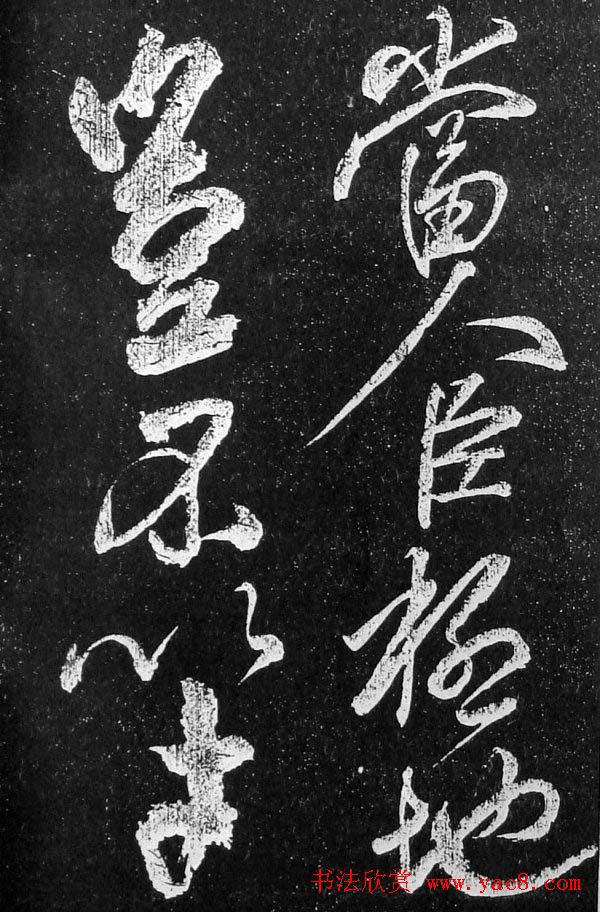 當人臣極地
豈不以才
书法欣赏 www.yac8.com